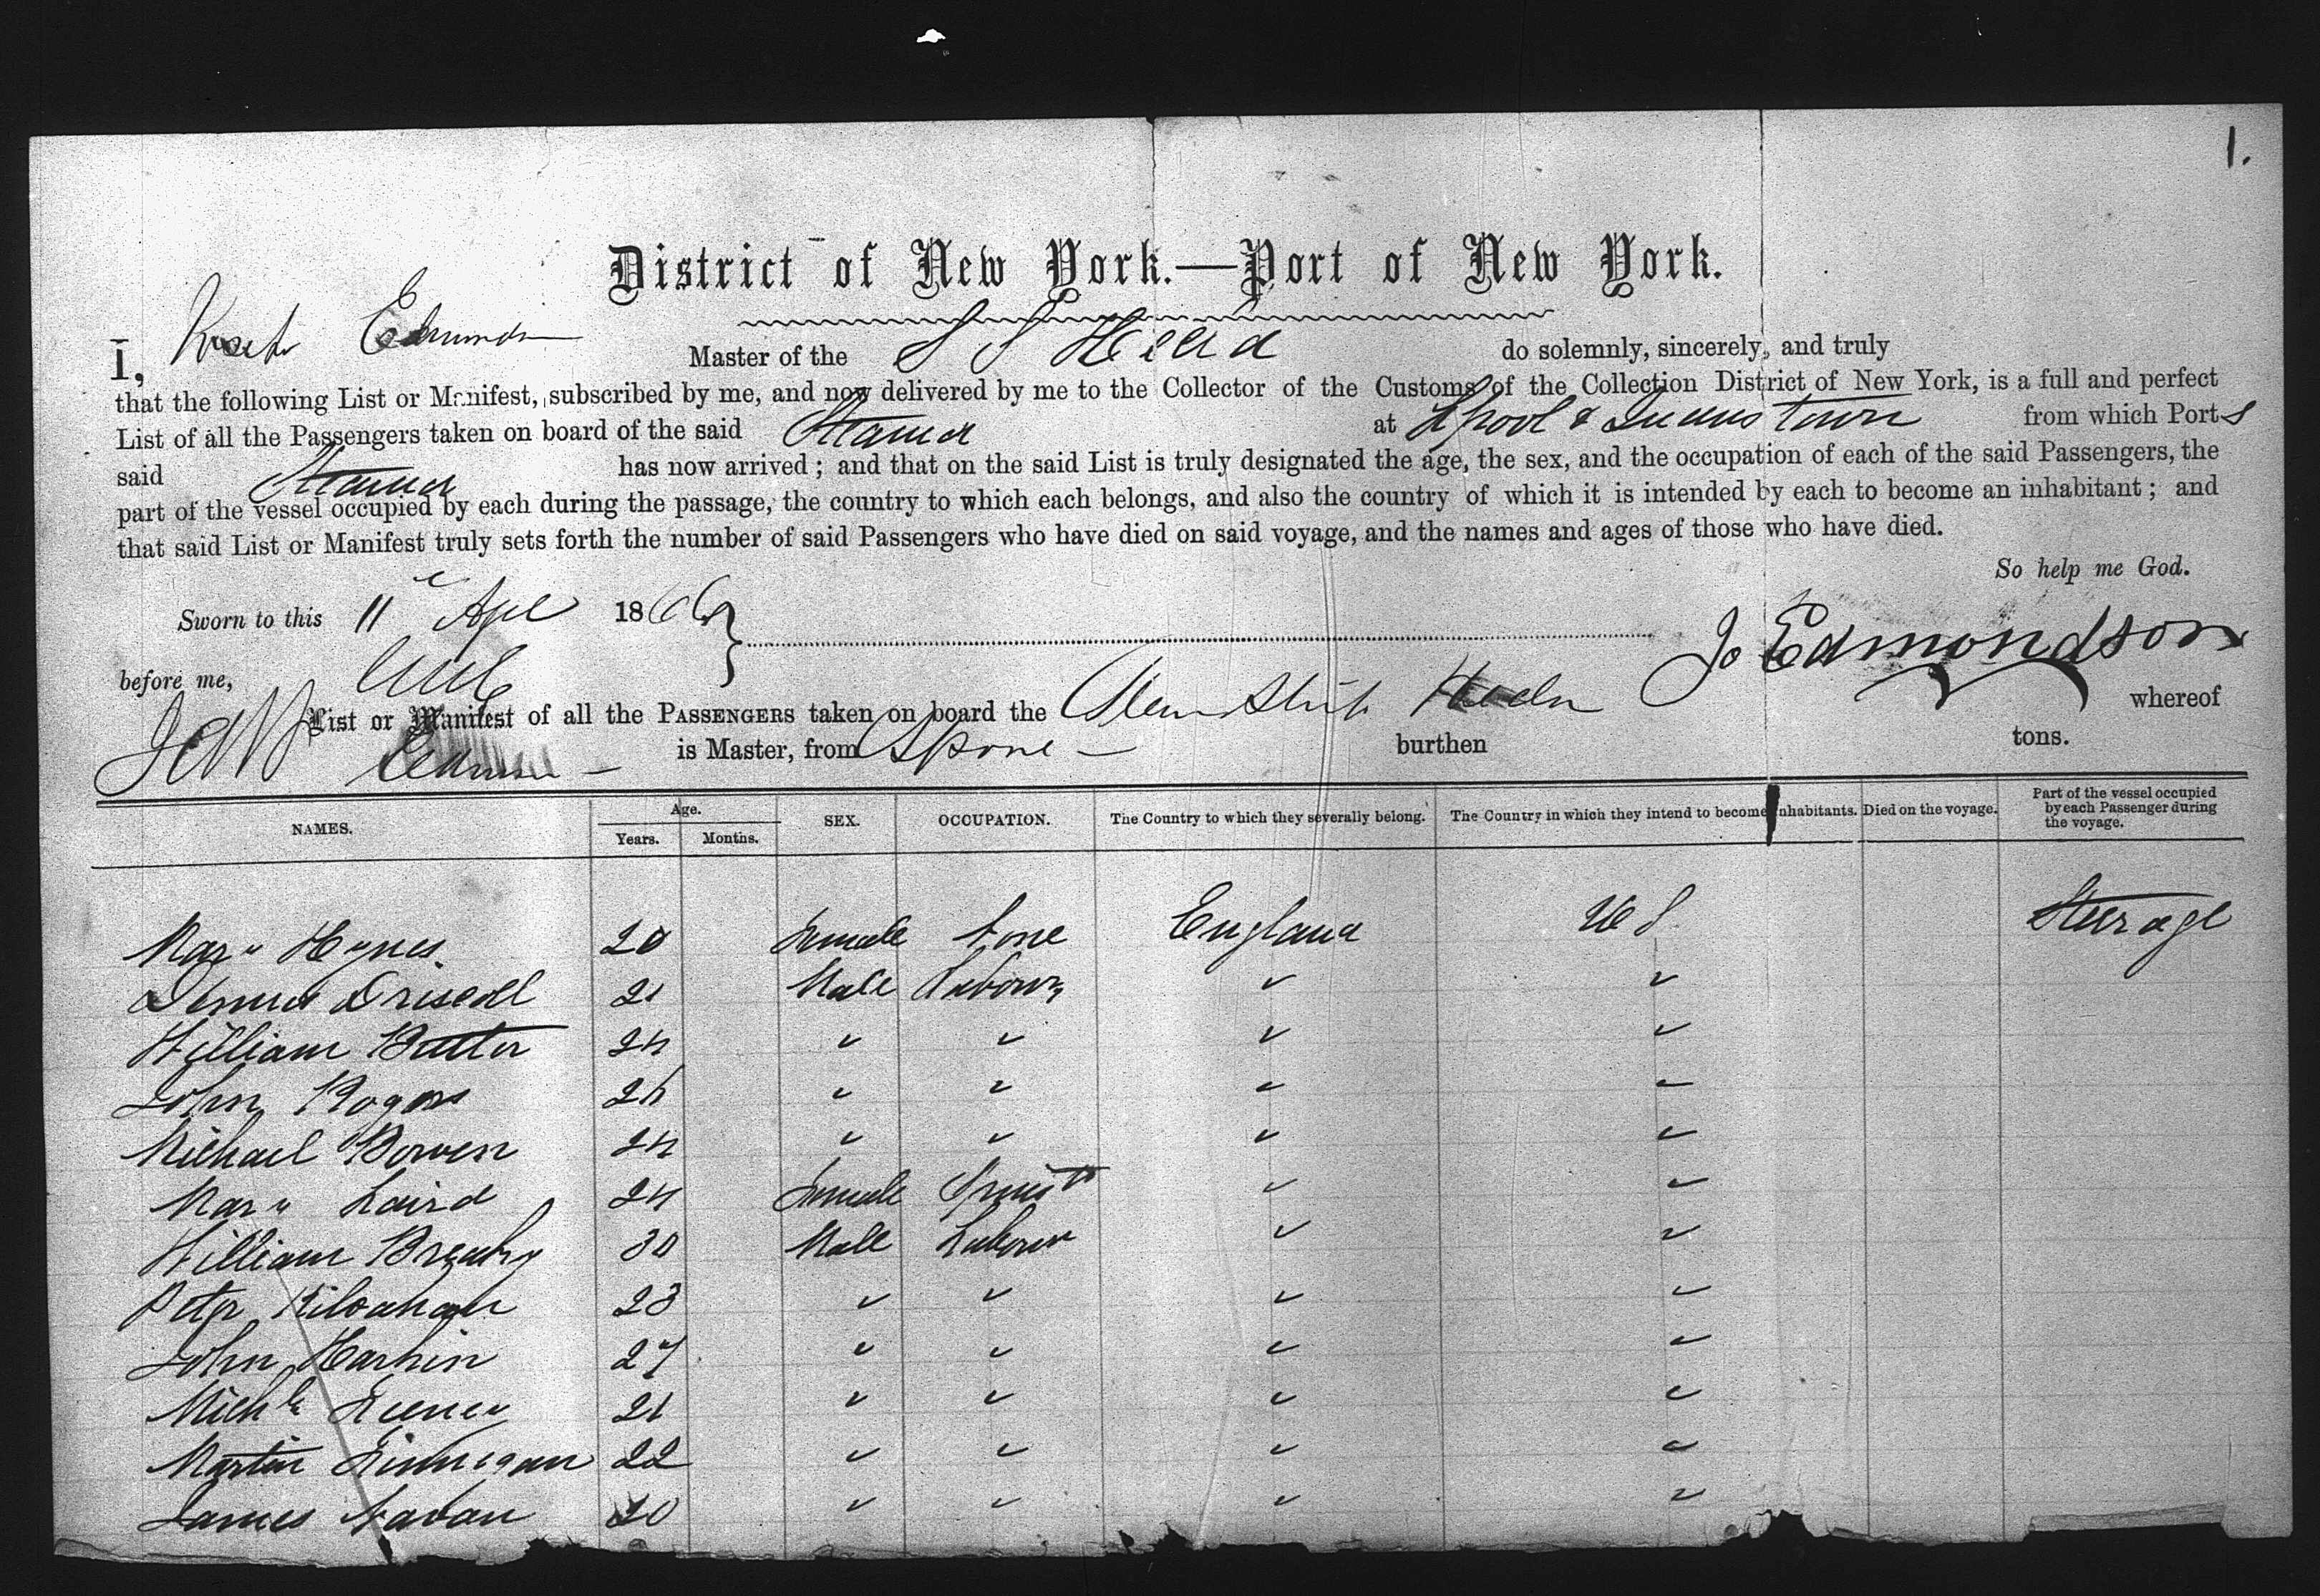 1.
District of New York.—Port of New York.
I, Joseph Edmondson Master of the S S Hecla do solemnly, sincerely, and truly
that the following List or Manifest, subscribed by me, and now delivered by me to the Collector of the Customs of the Collection District of New York, is a full and perfect
List of all the Passengers taken on board of the said Steamer at Lpool & Queenstown from which Ports
said Steamer has now arrived; and that on the said List is truly designated the age, the sex, and the occupation of each of the said Passengers, the
part of the vessel occupied by each during the passage, the country to which each belongs, and also the country of which it is intended by each to become an inhabitant; and
that said List or Manifest truly sets forth the number of said Passengers who have died on said voyage, and the names and ages of those who have died.
So help me God.
Sworn to this 11 Apl 1866
J Edmondson
before me,
List or Manifest of all the PASSENGERS taken on board the Steam Ship Hecla whereof
is Master, from Lpool burthen tons.
NAMES. Age. Years. Months. SEX. OCCUPATION. The Country to which they severally belong. The Country in which they intend to become inhabitants. Died on the voyage. Part of the vessel occupied by each Passenger during the voyage.
Mary Hynes 20 Female None England U S Steerage
Dennis Driscoll 21 Male Labourer " "
William Butler 24 " " " "
John Rogers 26 " " " "
Michael Bowen 24 " " " "
Mary Laird 24 Female Spinstr " "
William 30 Male Labourer " "
Peter 23 " " " "
John Harkin 27 " " " "
Michl 21 " " " "
Martin Finnegan 22 " " " "
James Navan 20 " " " "